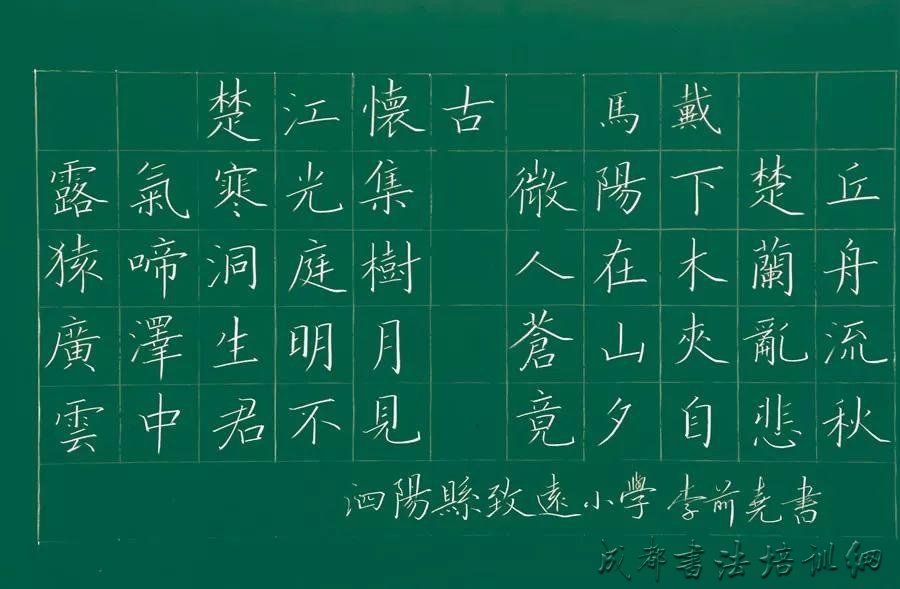 楚江懷古 馬戴
露氣寒光集 微陽下楚丘
猿啼洞庭樹 人在木蘭舟
廣澤生明月 蒼山夾亂流
雲中君不見 竟夕自悲秋
泗陽縣致遠小學 李前堯書
成都書法培训網